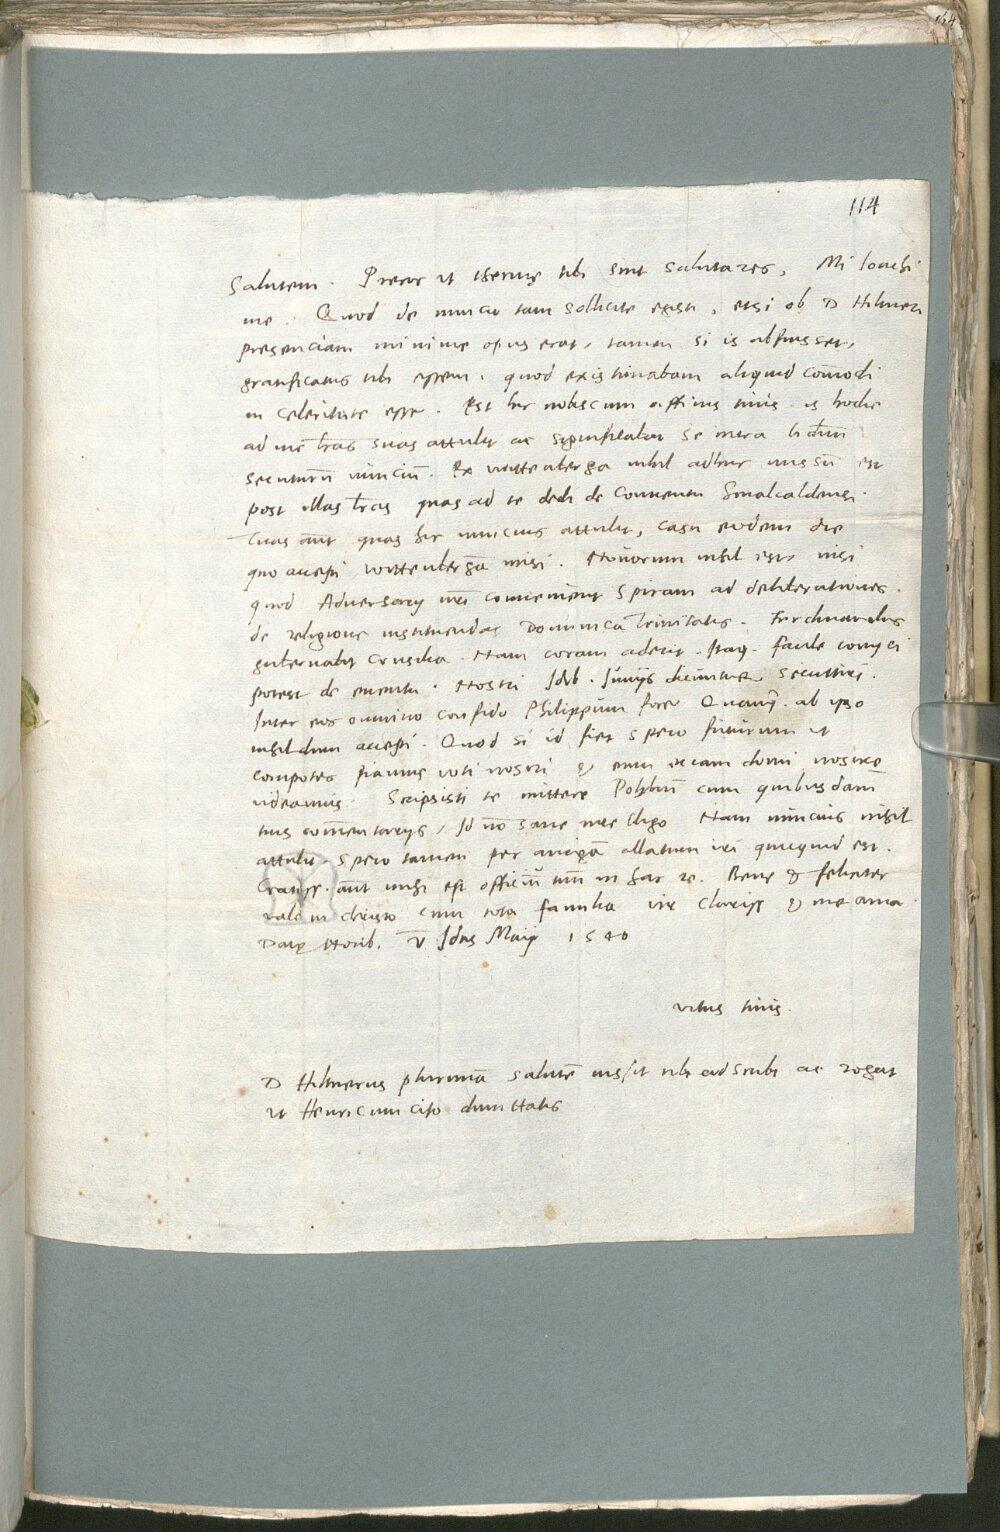 164
114
Salutem. Precor ut thermę tibi sint salutares, Mi Ioachi
me. Quod de nuncio tam sollicite egisti, etsi ob D Hilneri
presenciam minime opus erat, tamen si is abfuisset,
gratificatus tibi essem. quod existimabam aliquid com̄odi
in celeritate esse. Est hic nobiscum affinis tuus. is hodie
ad me lr̄as suas attulit ac significabat se intra biduū
secuturū nunciū. Ex Wittenberga nihil adhuc missū est
post illas lr̄as quas ad te dedi de Conuentu Smalcaldensi.
Tuas aūt quas hic nuncius attulit, casu eodem die
quo accepi Wittenbergā misi. Nouorum nihil est nisi
quod Adversarij nr̄i conueniunt Spiram ad deliberationes
de religione instituendas Dominica Trinitatis. Ferdinandus
gubernabit consilia. Nam coram aderit. Itaq. facile conijci
potest de euentu. Nostri Idib. Iunijs dicuntur secuturi.
Inter eos omnino confido Philippum fore Quanq̄. ab ipso
nihildum accepi. Quod si id fiet spero futurum ut
compotes fiamus voti nostri & eum eciam domi nostrae
videamus. Scripsisti te mittere Polybiū cum quibusdam
tuis com̄entarijs, Id nō sane intelligo Nam nuncius nihil
attulit. Spero tamen per aurigā allatum iri quicquid est.
Gratiss. aūt mihi est officiū tuū in hac re. Bene & feliciter
vale in christo cum tota familia vir clariss & me ama
Datę Norib. V Idus Maij 1540
Vitus tuus.
D Hilnerus plurimā salutē iussit tibi adscribi ac rogat
ut Henricum cito dimittatis